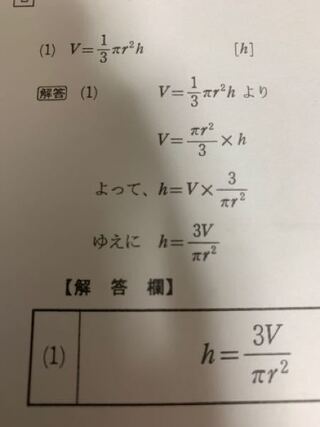 (1) V=1/3 πr²h [h]
解答 (1) V=1/3 πr²h より
V=πr²/3 × h
よって、h=V×3/πr²
ゆえに h=3V/πr²
【解 答 欄】
(1) h=3V/πr²